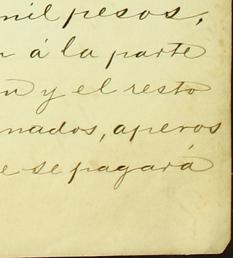 mil pesos,
n á la parte
n y el resto
nados, aperos
e se pagará